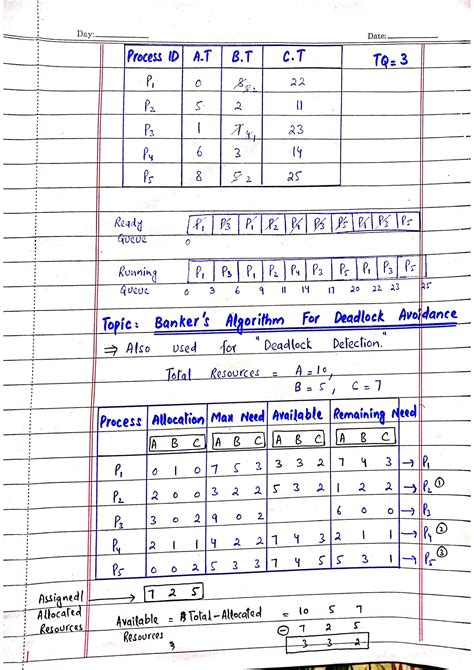 Day: Date:
Process ID A.T B.T C.T TQ = 3
P1 0 8 5 2 22
P2 5 2 11
P3 1 7 4 1 23
P4 6 3 14
P5 8 5 2 25
Ready Queue P1 P3 P1 P2 P4 P5 P1 P3 P5
0
Running Queue P1 P3 P1 P2 P4 P3 P5 P1 P3 P5
0 3 6 9 11 14 17 20 22 23 25
Topic: Banker's Algorithm For Deadlock Avoidance
⇒ Also used for "Deadlock Detection."
Total Resources = A = 10,
B = 5, C = 7
Process Allocation Max Need Available Remaining Need
A B C A B C A B C A B C
P1 0 1 0 7 5 3 3 3 2 7 4 3 → P1
P2 2 0 0 3 2 2 5 3 2 1 2 2 → P2 ①
P3 3 0 2 9 0 2 6 0 0 → P3
P4 2 1 1 4 2 2 7 4 3 2 1 1 → P4 ②
P5 0 0 2 5 3 3 7 4 5 5 3 1 → P5 ③
Assigned/ Allocated Resources → 7 2 5
Available Resources = Total - Allocated = 10 5 7
- 7 2 5
3 3 2